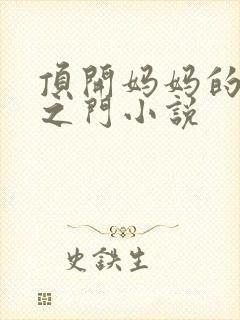 頂開妈妈的
之门小説
史鉄生